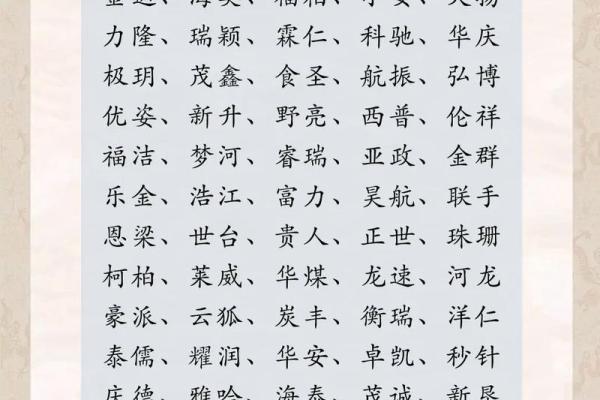 力隆、瑞颖、霖仁、科驰、华庆
极玥、茂鑫、食圣、航振、弘博
优姿、新升、野亮、西普、伦祥
福洁、梦河、睿瑞、亚政、金群
乐金、浩江、富力、昊航、联手
恩梁、世台、贵人、正世、珠珊
柯柏、莱威、华煤、龙速、河龙
豪派、云狐、炭丰、衡瑞、洋仁
泰儒、耀润、华安、卓凯、秒针
庆德、雅哈、海泰、茂诚、新恳